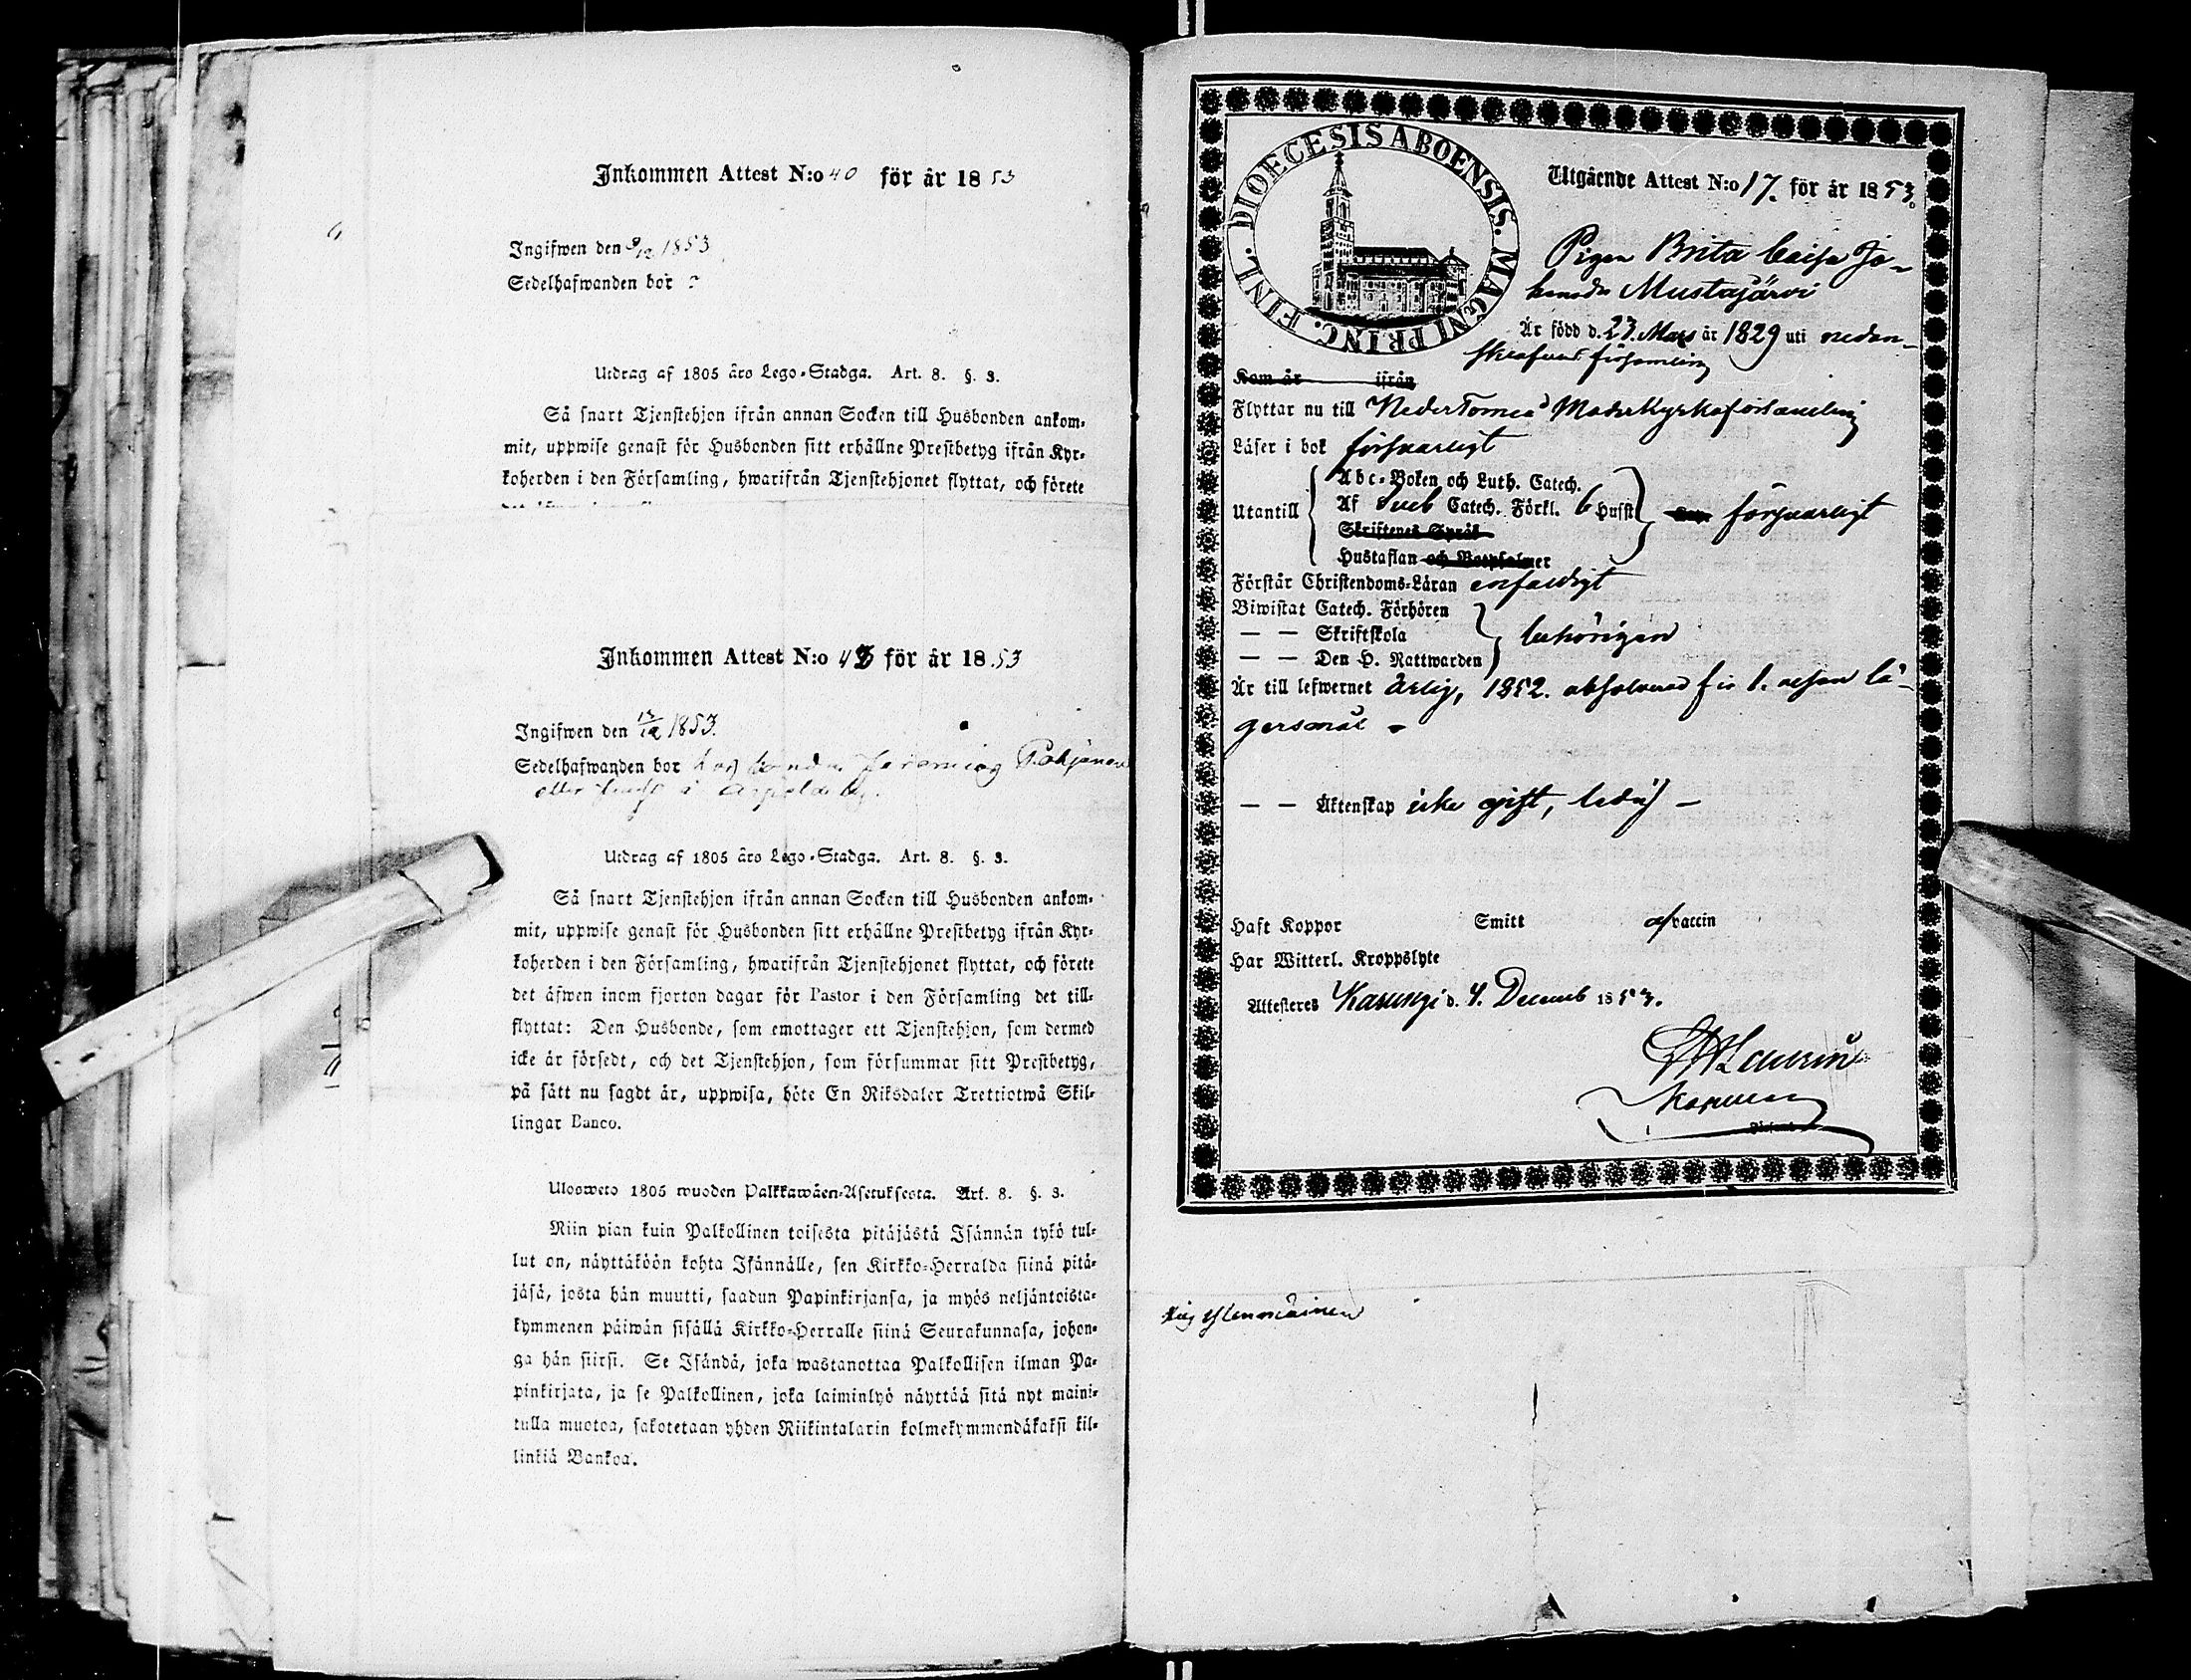 Inkommen Attest N:o 40 för år 1853
Ingifwen den 9/12 1853
Sedelhafwanden bor ?
Utdrag af 1805 års Lego-Stadga. Art. 8. §. 3.
Så snart Tjenstehjon ifrån annan Socken till Husbonden ankom-
mit, uppwise genast för Husbonden sitt erhållne Prestbetyg ifrån Kyr-
koherden i den Församling, hwarifrån Tjenstehjonet flyttat, och förete
Inkommen Attest N:o 43 för år 1853
Ingifwen den 13/12 1853.
Sedelhafwanden bor hos bonden Pohjanen
eller
Utdrag af 1805 års Lego-Stadga. Art. 8. §. 3.
Så snart Tjenstehjon ifrån annan Socken till Husbonden ankom-
mit, uppwise genast för Husbonden sitt erhållne Prestbetyg ifrån Kyr-
koherden i den Församling, hwarifrån Tjenstehjonet flyttat, och förete
det äfwen inom fjorton dagar för Pastor i den Församling det till-
flyttat: Den Husbonde, som emottager ett Tjenstehjon, som dermed
icke är försedt, och det Tjenstehjon, som försummar sitt Prestbetyg,
på sätt nu sagdt är, uppwisa, böte En Riksdaler Trettiotwå Skil-
lingar Banco.
Ulosweto 1805 wuoden Palkkawäen-Asetuksesta. Art. 8. §. 3.
Niin pian kuin Palkollinen toisesta pitäjästä Isännän tykö tul-
lut on, näyttäköön kohta Isännälle, sen Kirkko-Herralda siinä pitä-
jäsä, josta hän muutti, saadun Papinkirjansa, ja myös neljäntoista-
kymmenen päiwän sisällä Kirkko-Herralle siinä Seurakunnasa, johon-
ga hän siirsi. Se Isändä, joka wastanottaa Palkollisen ilman Pa-
pinkirjata, ja se Palkollinen, joka laiminlyö näyttää sitä nyt maini-
tulla muotoa, sakotetaan yhden Riikintalarin kolmekymmendäkaksi kil-
linkiä Bankoa.
DIOECESIS ABOENSIS. MAGNI PRINC. FINL.
Utgående Attest N:o 17. för år 1853.
Pigan Brita Caisa Jo-
hansdr Mustajärvi
Är född d. 23. Mars år 1829 uti nedan-
skrefvne församling
Kom år ifrån
Flyttar nu till NederTorneå Moderkyrkoförsamling
Läser i bok försvarligt
Utantill
Abc-Boken och Luth. Catech.
Af Sveb Catech. Förkl. 6 Hufst
Skriftenes Språk
Hustaflan och Botpsalmer
försvarligt
Förstår Christendoms-Läran enfaldigt
Biwistat Catech. Förhören
— — Skriftskola
— — Den H. Nattwarden
behörigen
Är till lefwernet ärlig, 1852. absolverad för 1. resan lä-
gersmål —
— — Äktenskap icke gift, ledig —
Haft Koppor Smitt af vaccin
Har Witterl. Kroppslyte
Attesteras Karungi d. 4. Decemb 1853.